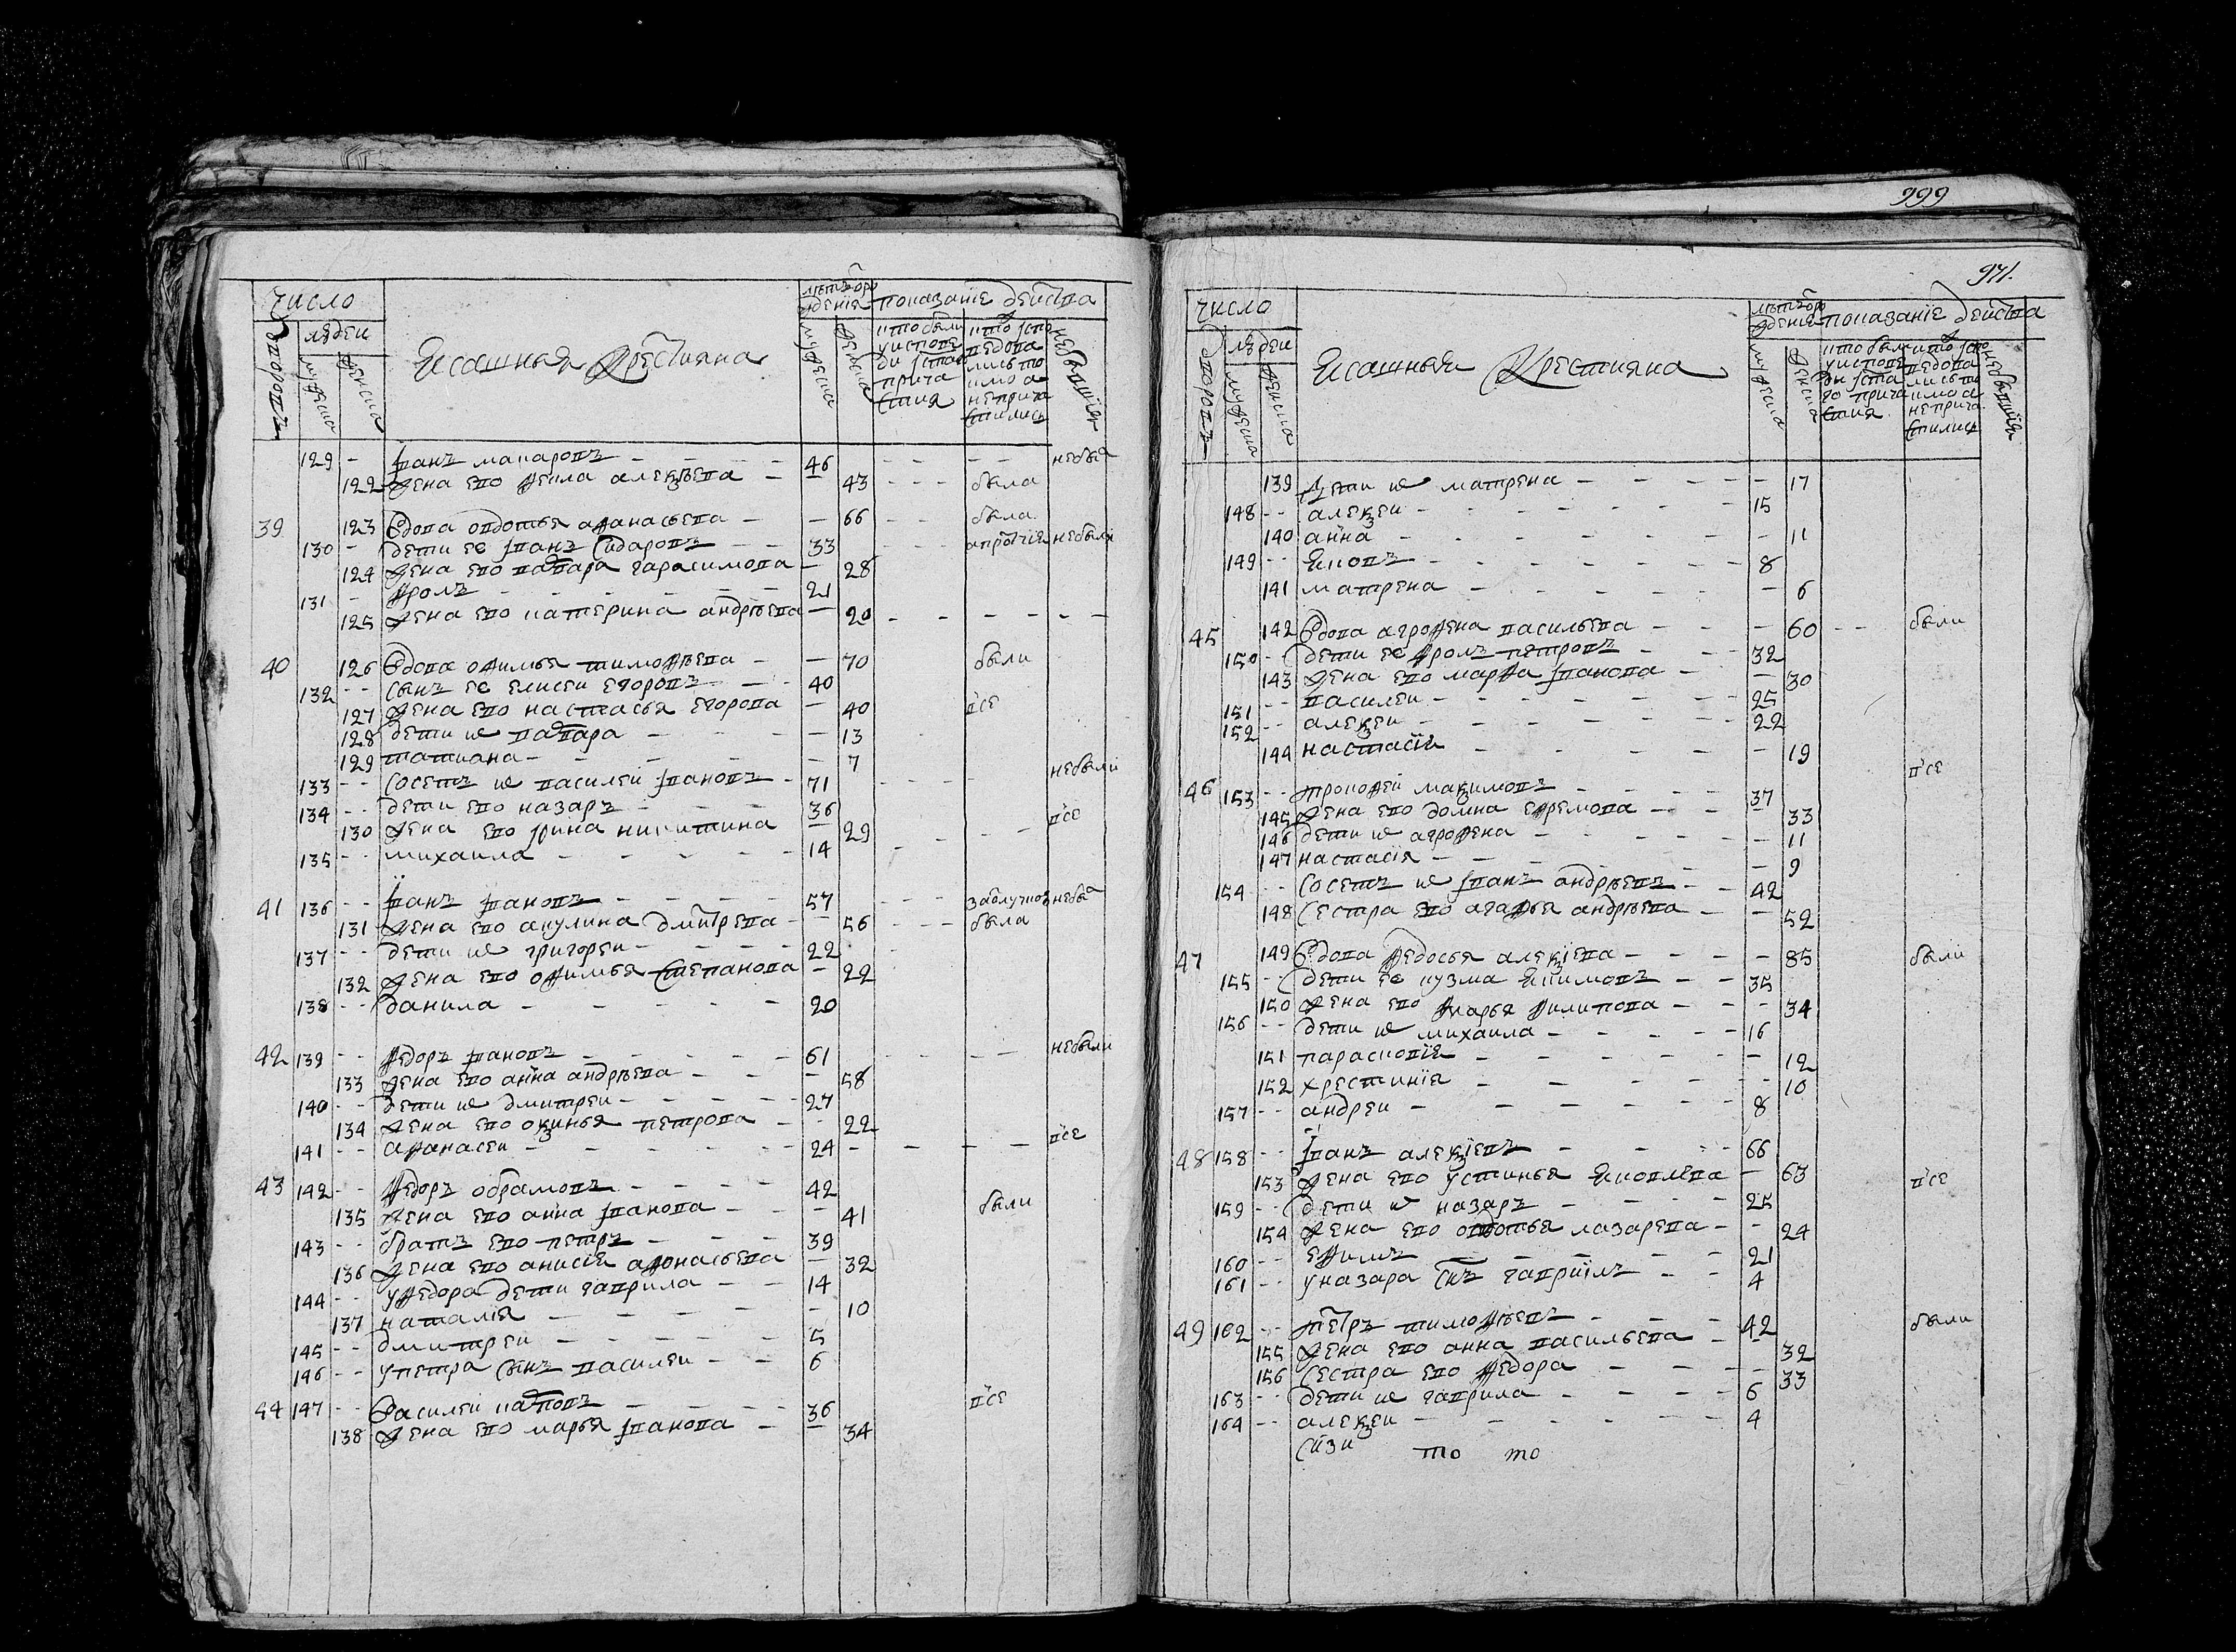 число
людеи
дворовъ
мужеска
женска
Ясашныя крестьяна
лѣтъ рождения
мужеска
женска
показание действа
кто были у исповеди и с та причастия
кто исповедовались токмо а не причастились
небывшия
129 - Іванъ макаровъ - - - 46 - - - - небы
122 жена ево фекла алексѣева - - 43 - - - была
39 123 Вдова овдотья афанасьева - - 66 - - была
130 - дети ее Іванъ Сидаровъ - - 33 - - - апротчия небыли
124 жена ево варвара гарасимова - 28
131 - фролъ - - - - 21
125 жена ево катерина андрѣева - 20 - - - - - -
40 126 Вдова офимья тимофѣева - - 70 были
132 - - сынъ ее елисеи егоровъ - - 40
127 жена ево настасья егорова - 40 все
128 дети их варвара - - - - 13
129 татиана - - - - - 7
133 - - Сосетъ их василеи Івановъ - 71 - - - - небыли
134 - - дети ево назаръ - - - 36
130 жена ево Ірина никитина - 29 - - - все
135 - - михаила - - - - - 14
41 136 - - Іванъ Івановъ - - - - 57 - - - заблучноѣ небы
131 жена ево акулина дмитрева - - 56 - - - была
137 - - дети их григореи - - - - 22
132 жена ево офимья Степанова - 22
138 - - данила - - - - - 20
42 139 - - федоръ Івановъ - - - - - 61 - - - - небыли
133 жена ево анна андрѣева - - - 58
140 - - дети их дмитреи - - - - 27
134 жена ево оксинья петрова - - 22
141 - - афанасеи - - - - - 24 - - - - все
43 142 - - федоръ обрамовъ - - - - 42
135 жена ево анна Іванова - - - 41 были
143 - - братъ ево петръ - - - 39
136 жена ево анисия афонасьева - 32
144 - - у федора дети гаврила - - 14
137 наталия - - - - - 10
145 - - дмитреи - - - - - 5
146 - - у петра сынъ василеи - - 6
44 147 - - Василеи - - - - 36 все
138 жена ево марья Іванова - - 34
999
971.
число
людеи
дворовъ
мужеска
женска
Ясашныя Крестияна
лѣтъ рождения
мужеска
женска
показание действа
кто были у исповеди и с то причастия
кто исповедовались токмо а не причастились
небывшия
139 Дети их матрена - - - - - 17
148 - - алексеи - - - - - - 15
140 анна - - - - - - - 11
149 - - Яковъ - - - - - - 8
141 матрена - - - - - - 6
45 142 Вдова агрофена васильева - - - 60 - - были
150 - - дети ее фролъ петровъ - - - 32
143 жена ево марфа Іванова - - - 30
151 - - василеи - - - - - - 25
152 - - алексеи - - - - - - 22
144 настасия - - - - - - 19
46 153 - - трофей максимовъ - - - - 37 все
145 жена ево домна ефремова - - - 33
146 дети их агрофена - - - - - - 11
147 настасия - - - - - 9
154 - - Сосетъ их Іванъ андрѣевъ - - 42
148 Сестра ево агафья андрѣева - - - 52
47 149 Вдова федосья алексиева - - - - 85 были
155 - - дети ее кузма Якимовъ - - 35
150 жена ево марья филипова - - - 34
156 - - дети их михаила - - - - 16
151 парасковия - - - - - - 12
152 христиния - - - - - - 10
157 - - андреи - - - - - - 8
48 158 - - Іванъ алексиевъ - - - - 66
153 жена ево устинья Яковлева - 63 все
159 - - дети их назаръ - - - - - 25
154 жена ево овдотья лазарева - - 24
160 - - ефимъ - - - - - 21
161 - - у назара снъ гавриилъ - - 4
49 162 - - петръ тимофѣевъ - - - - 42 были
155 жена ево анна васильева - - 32
156 Сестра ево федора - - - - 33
163 - - дети их гаврила - - - - 6
164 - - алексеи - - - - - - 4
то то